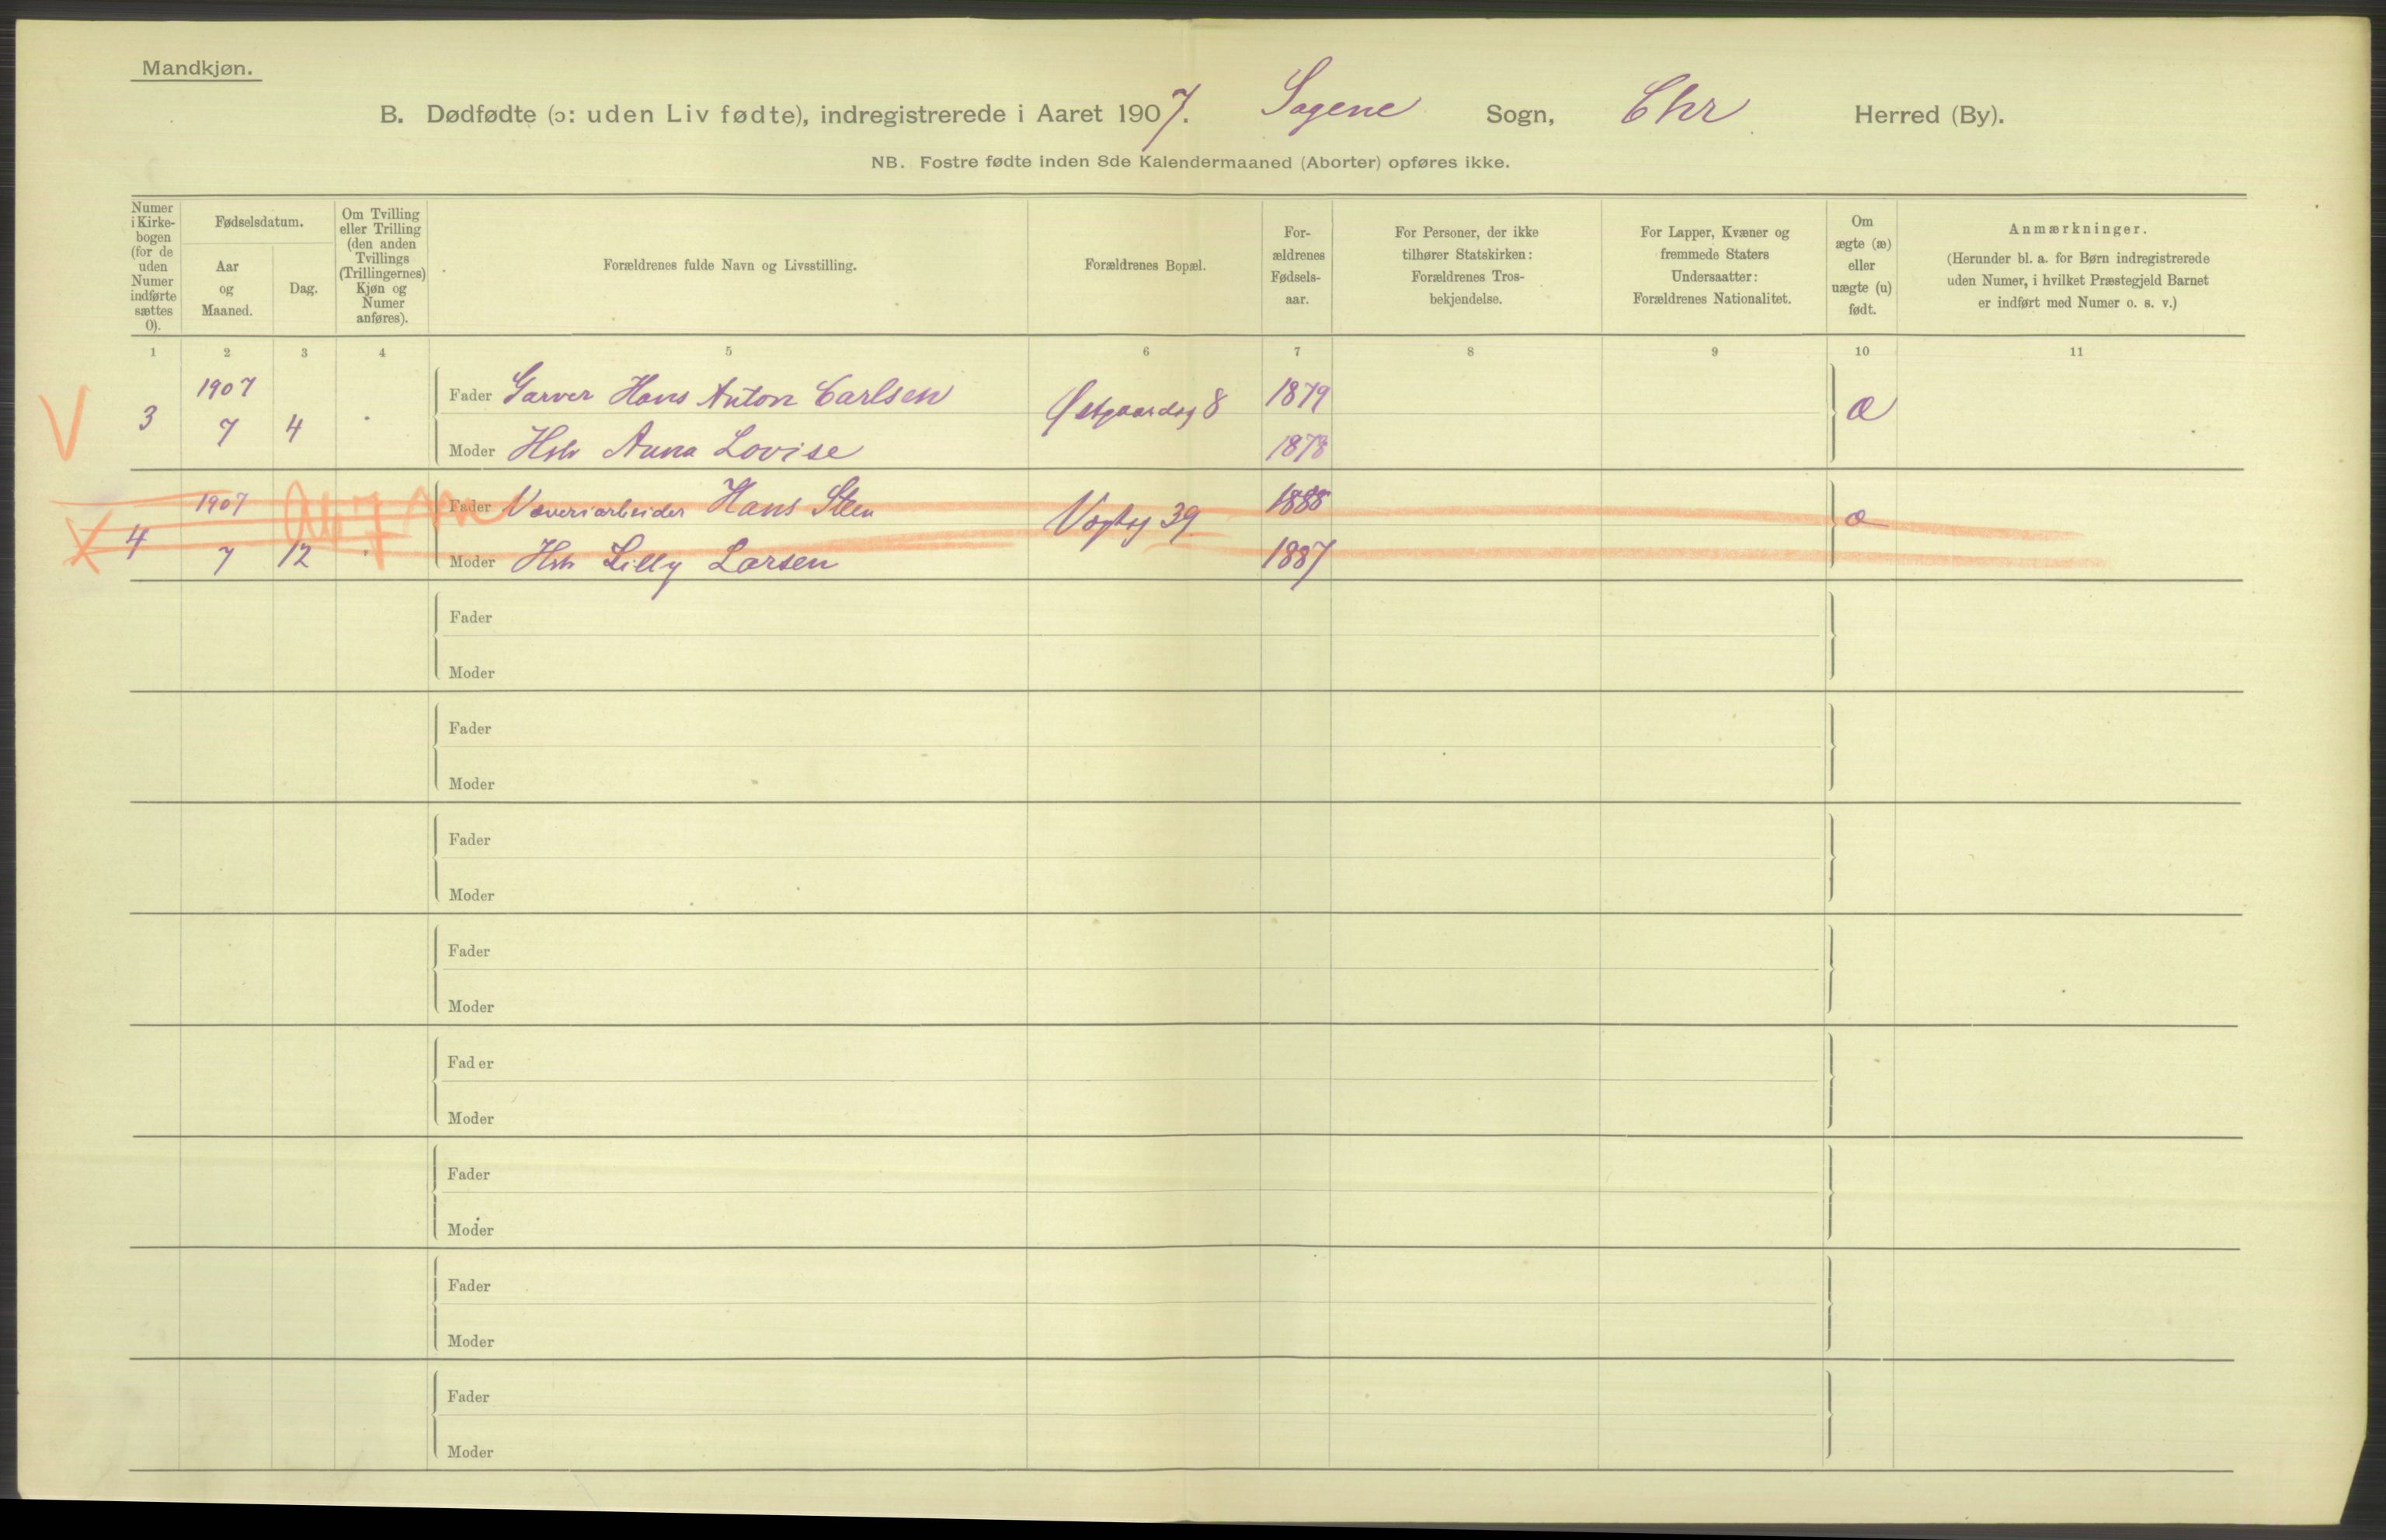 Mandkjøn.
B. Dødfødte (ɔ: uden Liv fødte), indregistrerede i Aaret 1907. Sagene Sogn, Chr Herred (By).
NB. Fostre fødte inden 8de Kalendermaaned (Aborter) opføres ikke.
Numer
i Kirke-
bogen
(for de
uden
Numer
indførte
sættes
0).
Fødselsdatum.
Aar
og
Maaned.
Dag.
Om Tvilling
eller Trilling
(den anden
Tvillings
(Trillingernes)
Kjøn og
Numer
anføres).
Forældrenes fulde Navn og Livsstilling.
Forældrenes Bopæl.
For-
ældrenes
Fødsels-
aar.
For Personer, der ikke
tilhører Statskirken:
Forældrenes Tros-
bekjendelse.
For Lapper, Kvæner og
fremmede Staters
Undersaatter:
Forældrenes Nationalitet.
Om
ægte (æ)
eller
uægte (u)
født.
Anmærkninger.
(Herunder bl. a. for Børn indregistrerede
uden Numer, i hvilket Præstegjeld Barnet
er indført med Numer o. s. v.)
1 2 3 4 5 6 7 8 9 10 11
V
3 1907 7 4
Fader Garver Hans Anton Carlsen
Østgaardsg 8 1879 æ
Moder Hstr Anna Lovise 1878
X
4 1907 7 12
Fader Væveriarbeider Hans Steen
Vogtsg 39 1888 æ
Moder Hstr Lilly Larsen 1887
Fader
Moder
Fader
Moder
Fader
Moder
Fader
Moder
Fader
Moder
Fader
Moder
Fader
Moder
Fader
Moder